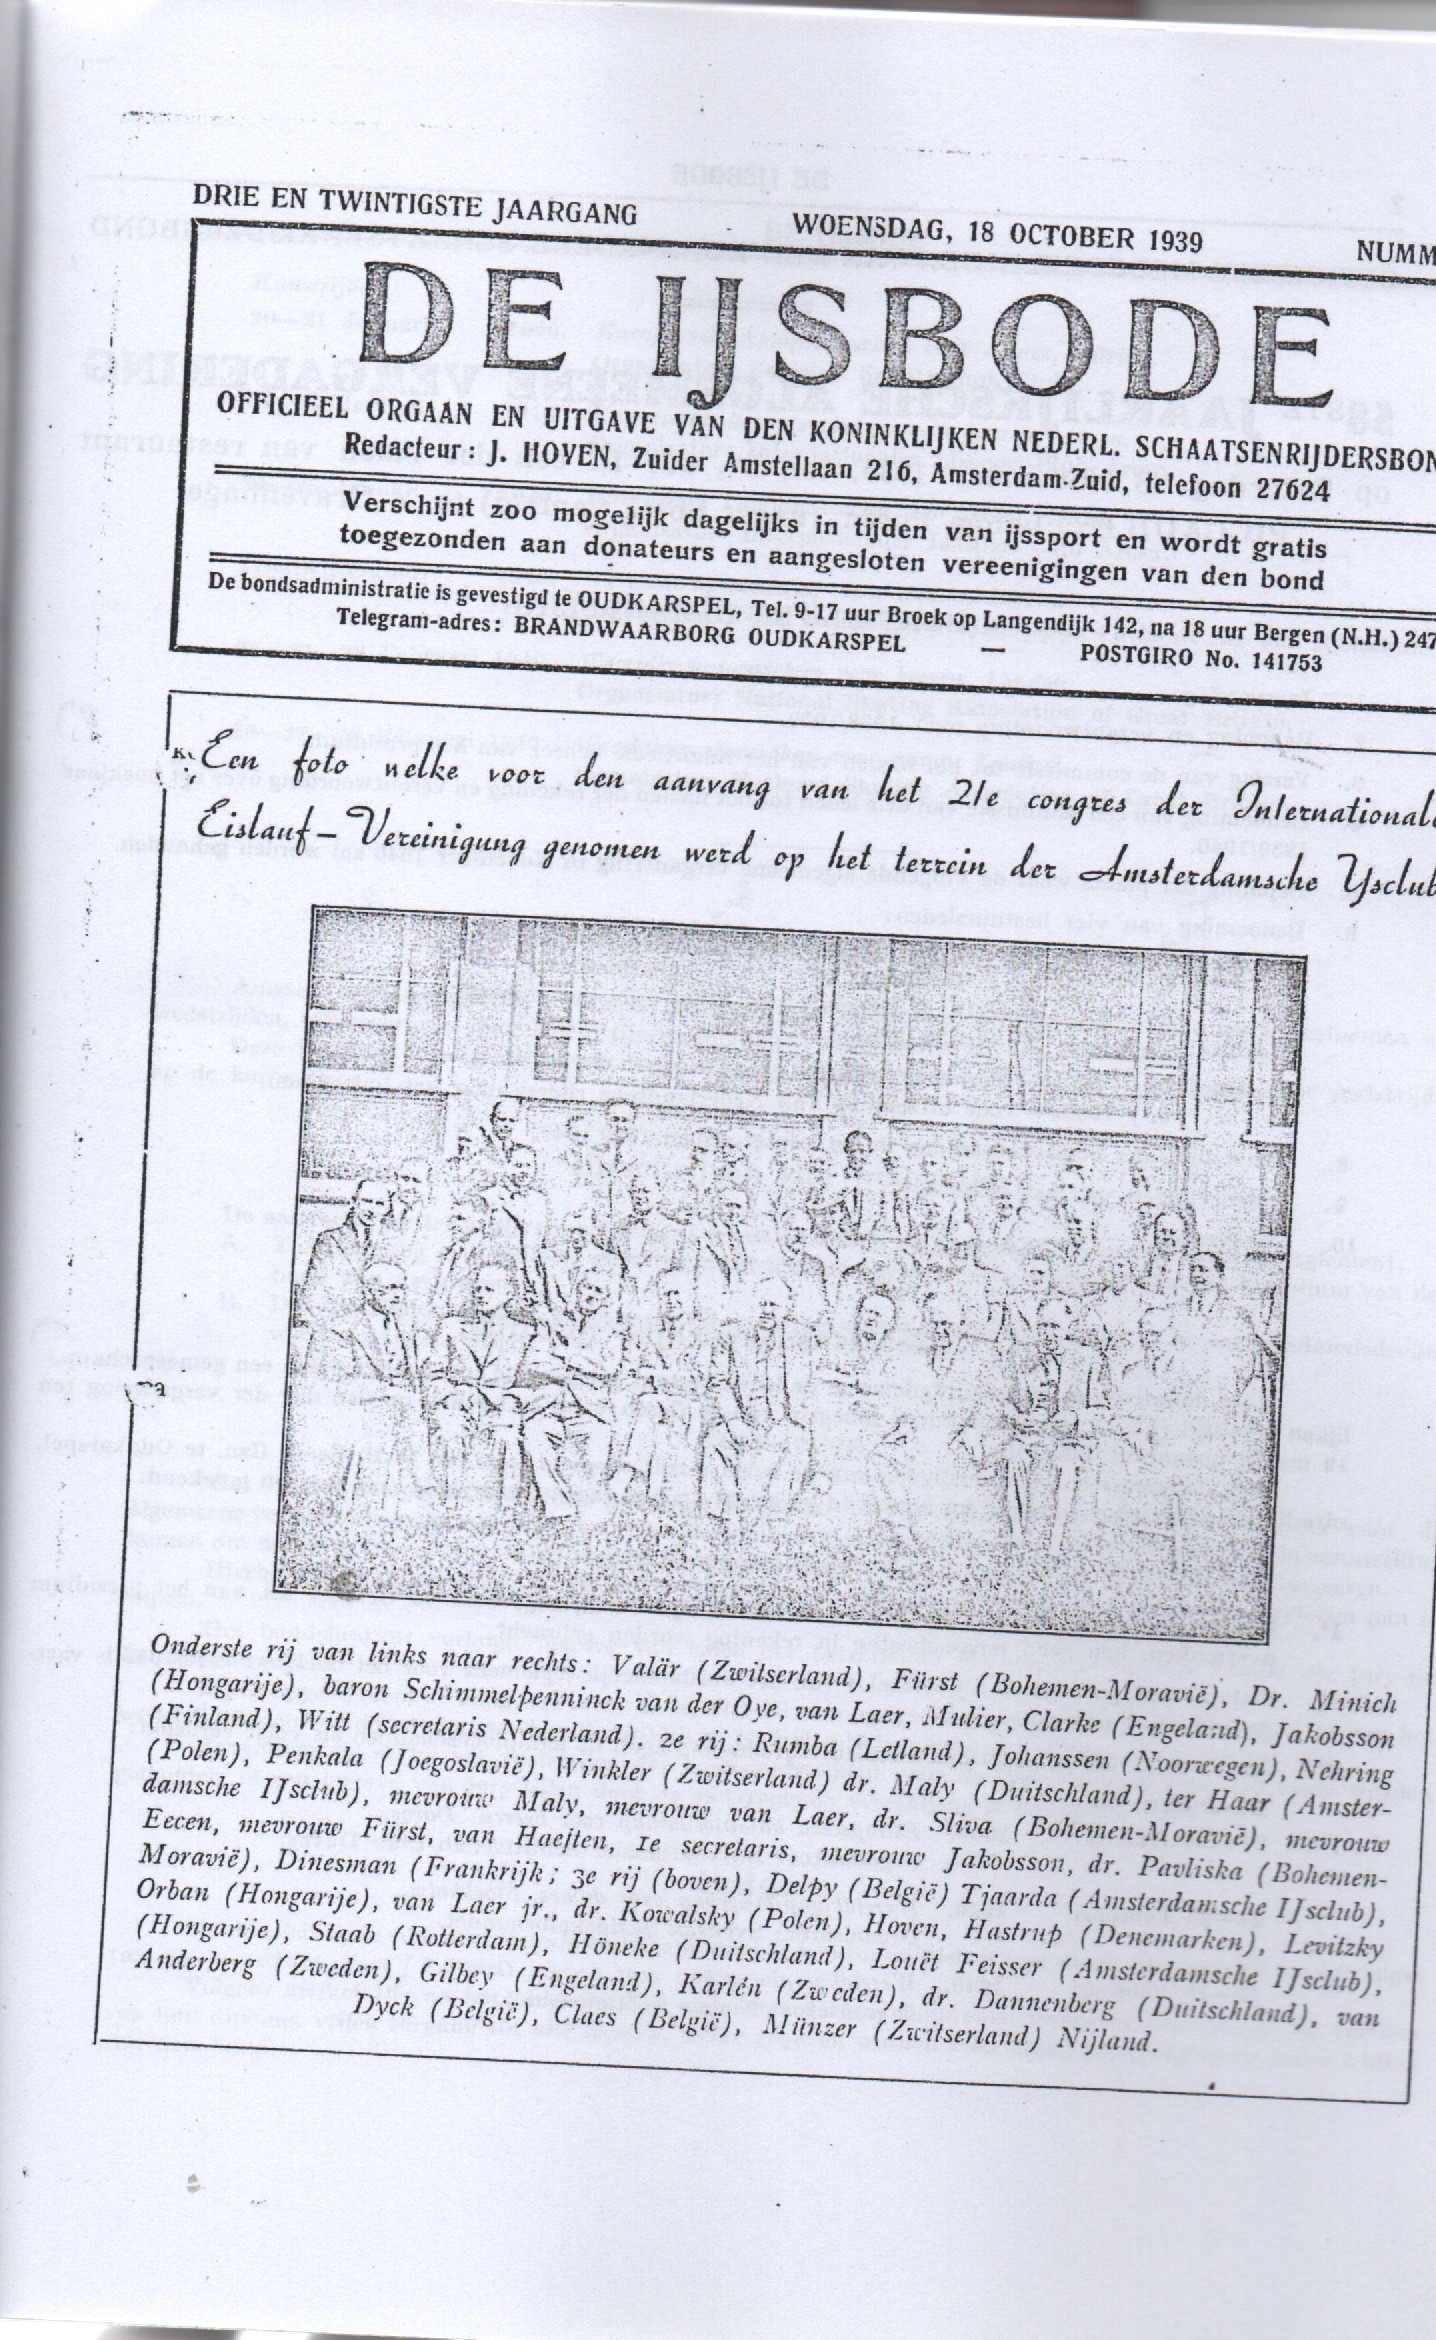 DRIE EN TWINTIGSTE JAARGANG WOENSDAG, 18 OCTOBER 1939 NUMM
DE IJSBODE
OFFICIEEL ORGAAN EN UITGAVE VAN DEN KONINKLIJKEN NEDERL. SCHAATSENRIJDERSBON
Redacteur: J. HOVEN, Zuider Amstellaan 216, Amsterdam-Zuid, telefoon 27624
Verschijnt zoo mogelijk dagelijks in tijden van ijssport en wordt gratis
toegezonden aan donateurs en aangesloten vereenigingen van den bond
De bondsadministratie is gevestigd te OUDKARSPEL, Tel. 9-17 uur Broek op Langendijk 142, na 18 uur Bergen (N.H.) 247
Telegram-adres: BRANDWAARBORG OUDKARSPEL — POSTGIRO No. 141753
Een foto welke voor den aanvang van het 21e congres der Internationale
Eislauf-Vereinigung genomen werd op het terrein der Amsterdamsche IJsclub
Onderste rij van links naar rechts: Valär (Zwitserland), Fürst (Bohemen-Moravië), Dr. Minich
(Hongarije), baron Schimmelpenninck van der Oye, van Laer, Mulier, Clarke (Engeland), Jakobsson
(Finland), Witt (secretaris Nederland). 2e rij: Rumba (Letland), Johanssen (Noorwegen), Nehring
(Polen), Penkala (Joegoslavië), Winkler (Zwitserland) dr. Maly (Duitschland), ter Haar (Amster-
damsche IJsclub), mevrouw Maly, mevrouw van Laer, dr. Sliva (Bohemen-Moravië), mevrouw
Eecen, mevrouw Fürst, van Haeften, 1e secretaris, mevrouw Jakobsson, dr. Pavliska (Bohemen-
Moravië), Dinesman (Frankrijk; 3e rij (boven), Delpy (België) Tjaarda (Amsterdamsche IJsclub),
Orban (Hongarije), van Laer jr., dr. Kowalsky (Polen), Hoven, Hastrup (Denemarken), Levitzky
(Hongarije), Staab (Rotterdam), Höneke (Duitschland), Louët Feisser (Amsterdamsche IJsclub),
Anderberg (Zweden), Gilbey (Engeland), Karlén (Zweden), dr. Dannenberg (Duitschland), van
Dyck (België), Claes (België), Münzer (Zwitserland) Nijland.